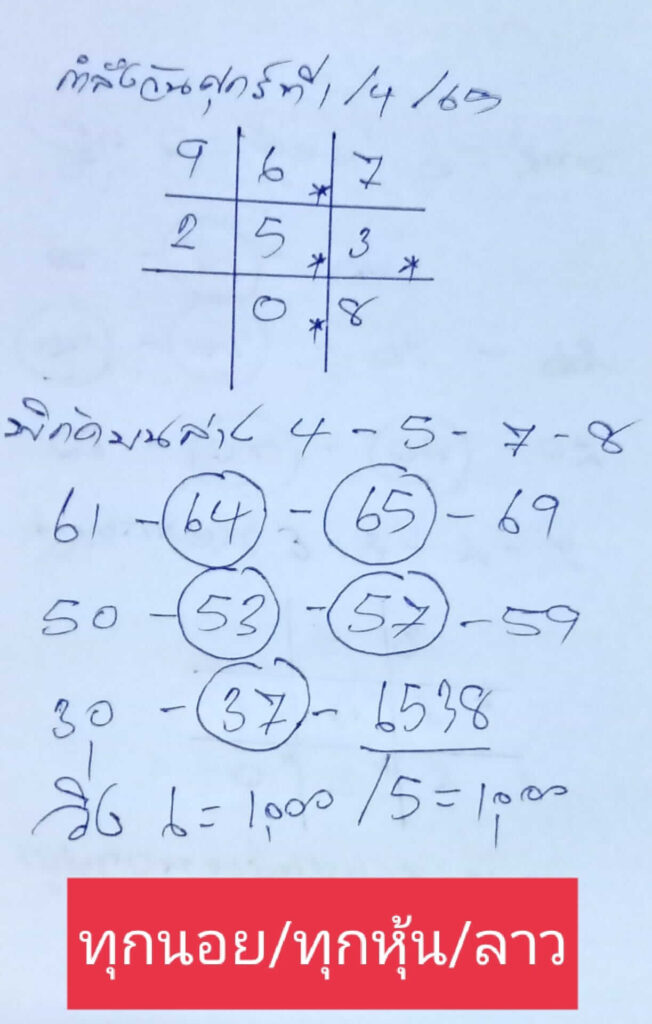 กำลังวันศุกร์ที่ 1/4/65
9 6 * 7
2 5 * 3 *
0 * 8
พิกัดบนล่าง 4-5-7-8
61-64-65-69
50-53-57-59
30-37-6538
วิ่ง 6=1,000/5=1,000
ทุกนอย/ทุกหุ้น/ลาว